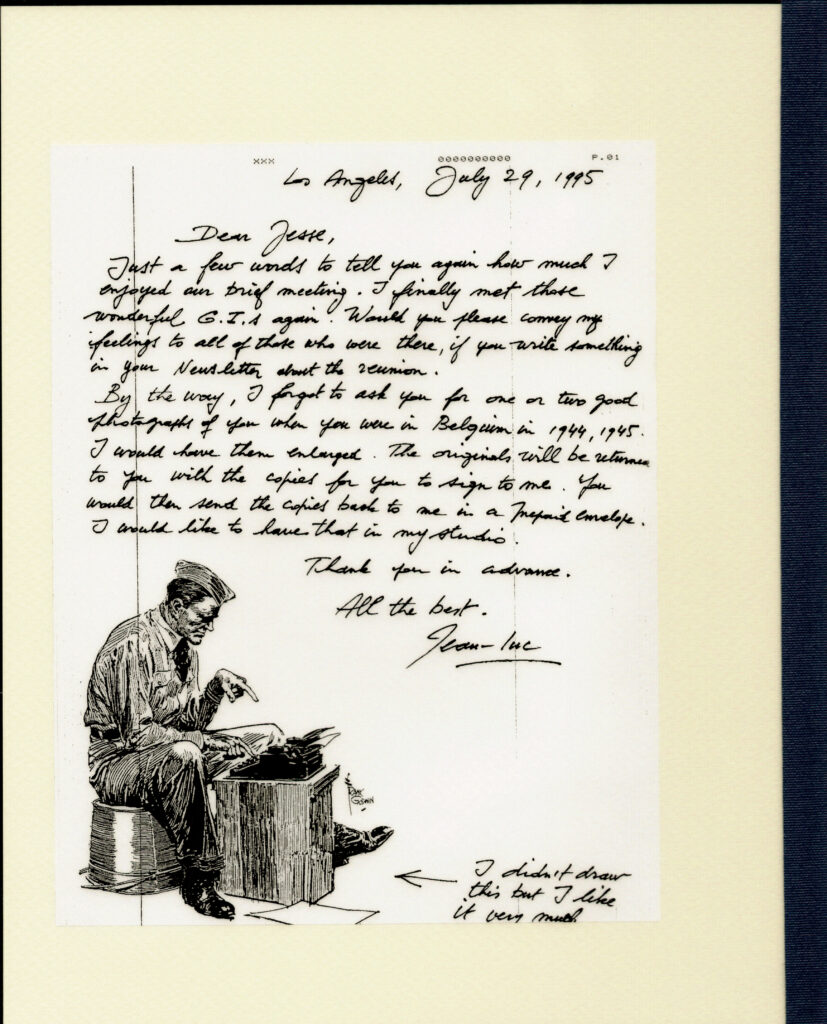 XXX 0000000000 P.01
Los Angeles, July 29, 1995
Dear Jesse,
Just a few words to tell you again how much I
enjoyed our brief meeting. I finally met those
wonderful G.I.s again. Would you please convey my
feelings to all of those who were there, if you write something
in your Newsletter about the reunion.
By the way, I forgot to ask you for one or two good
photographs of you when you were in Belgium in 1944, 1945.
I would have them enlarged. The originals will be returned
to you with the copies for you to sign to me. You
would then send the copies back to me in a prepaid envelope.
I would like to have that in my studio.
Thank you in advance.
All the best.
Jean-Luc
I didn't draw
this but I like
it very much